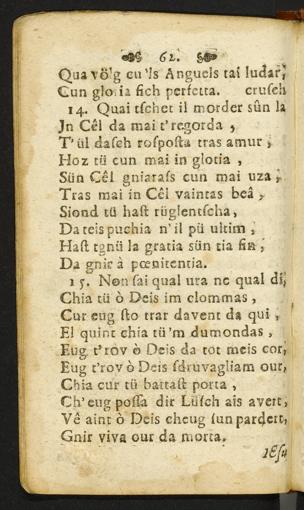 62.
Qua vö'g cu'ls Anguels tai ludar,
Cun gloria sich perfetta. cruseh
14. Quai tscher il morder sûn la
Jn Cêl da mai t'regorda,
T'ül daseh rosposta tras amur,
Hoz tü cun mai in gloria,
Sün Cêl gniarass cun mai uza,
Tras mai in Cêl vaintas beâ,
Siond tü hast rüglentscha,
Da teis puchia n'il pü ultim,
Hast tgnü la gratia sün tia fin,
Da gnir à pœnitentia.
15. Non sai qual ura ne qual di,
Chia tü ò Deis im clommas,
Cur eug sto trar davent da qui,
El quint chia tü'm dumondas,
Eug t'rov ò Deis da tot meis cor,
Eug t'rov ò Deis sdruvagliam our,
Chia cur tü battast porta,
Ch'eug possa dir Lüsch ais avert,
Vê aint ò Deis cheug sun pardert,
Gnir viva our da morta.
JEsu